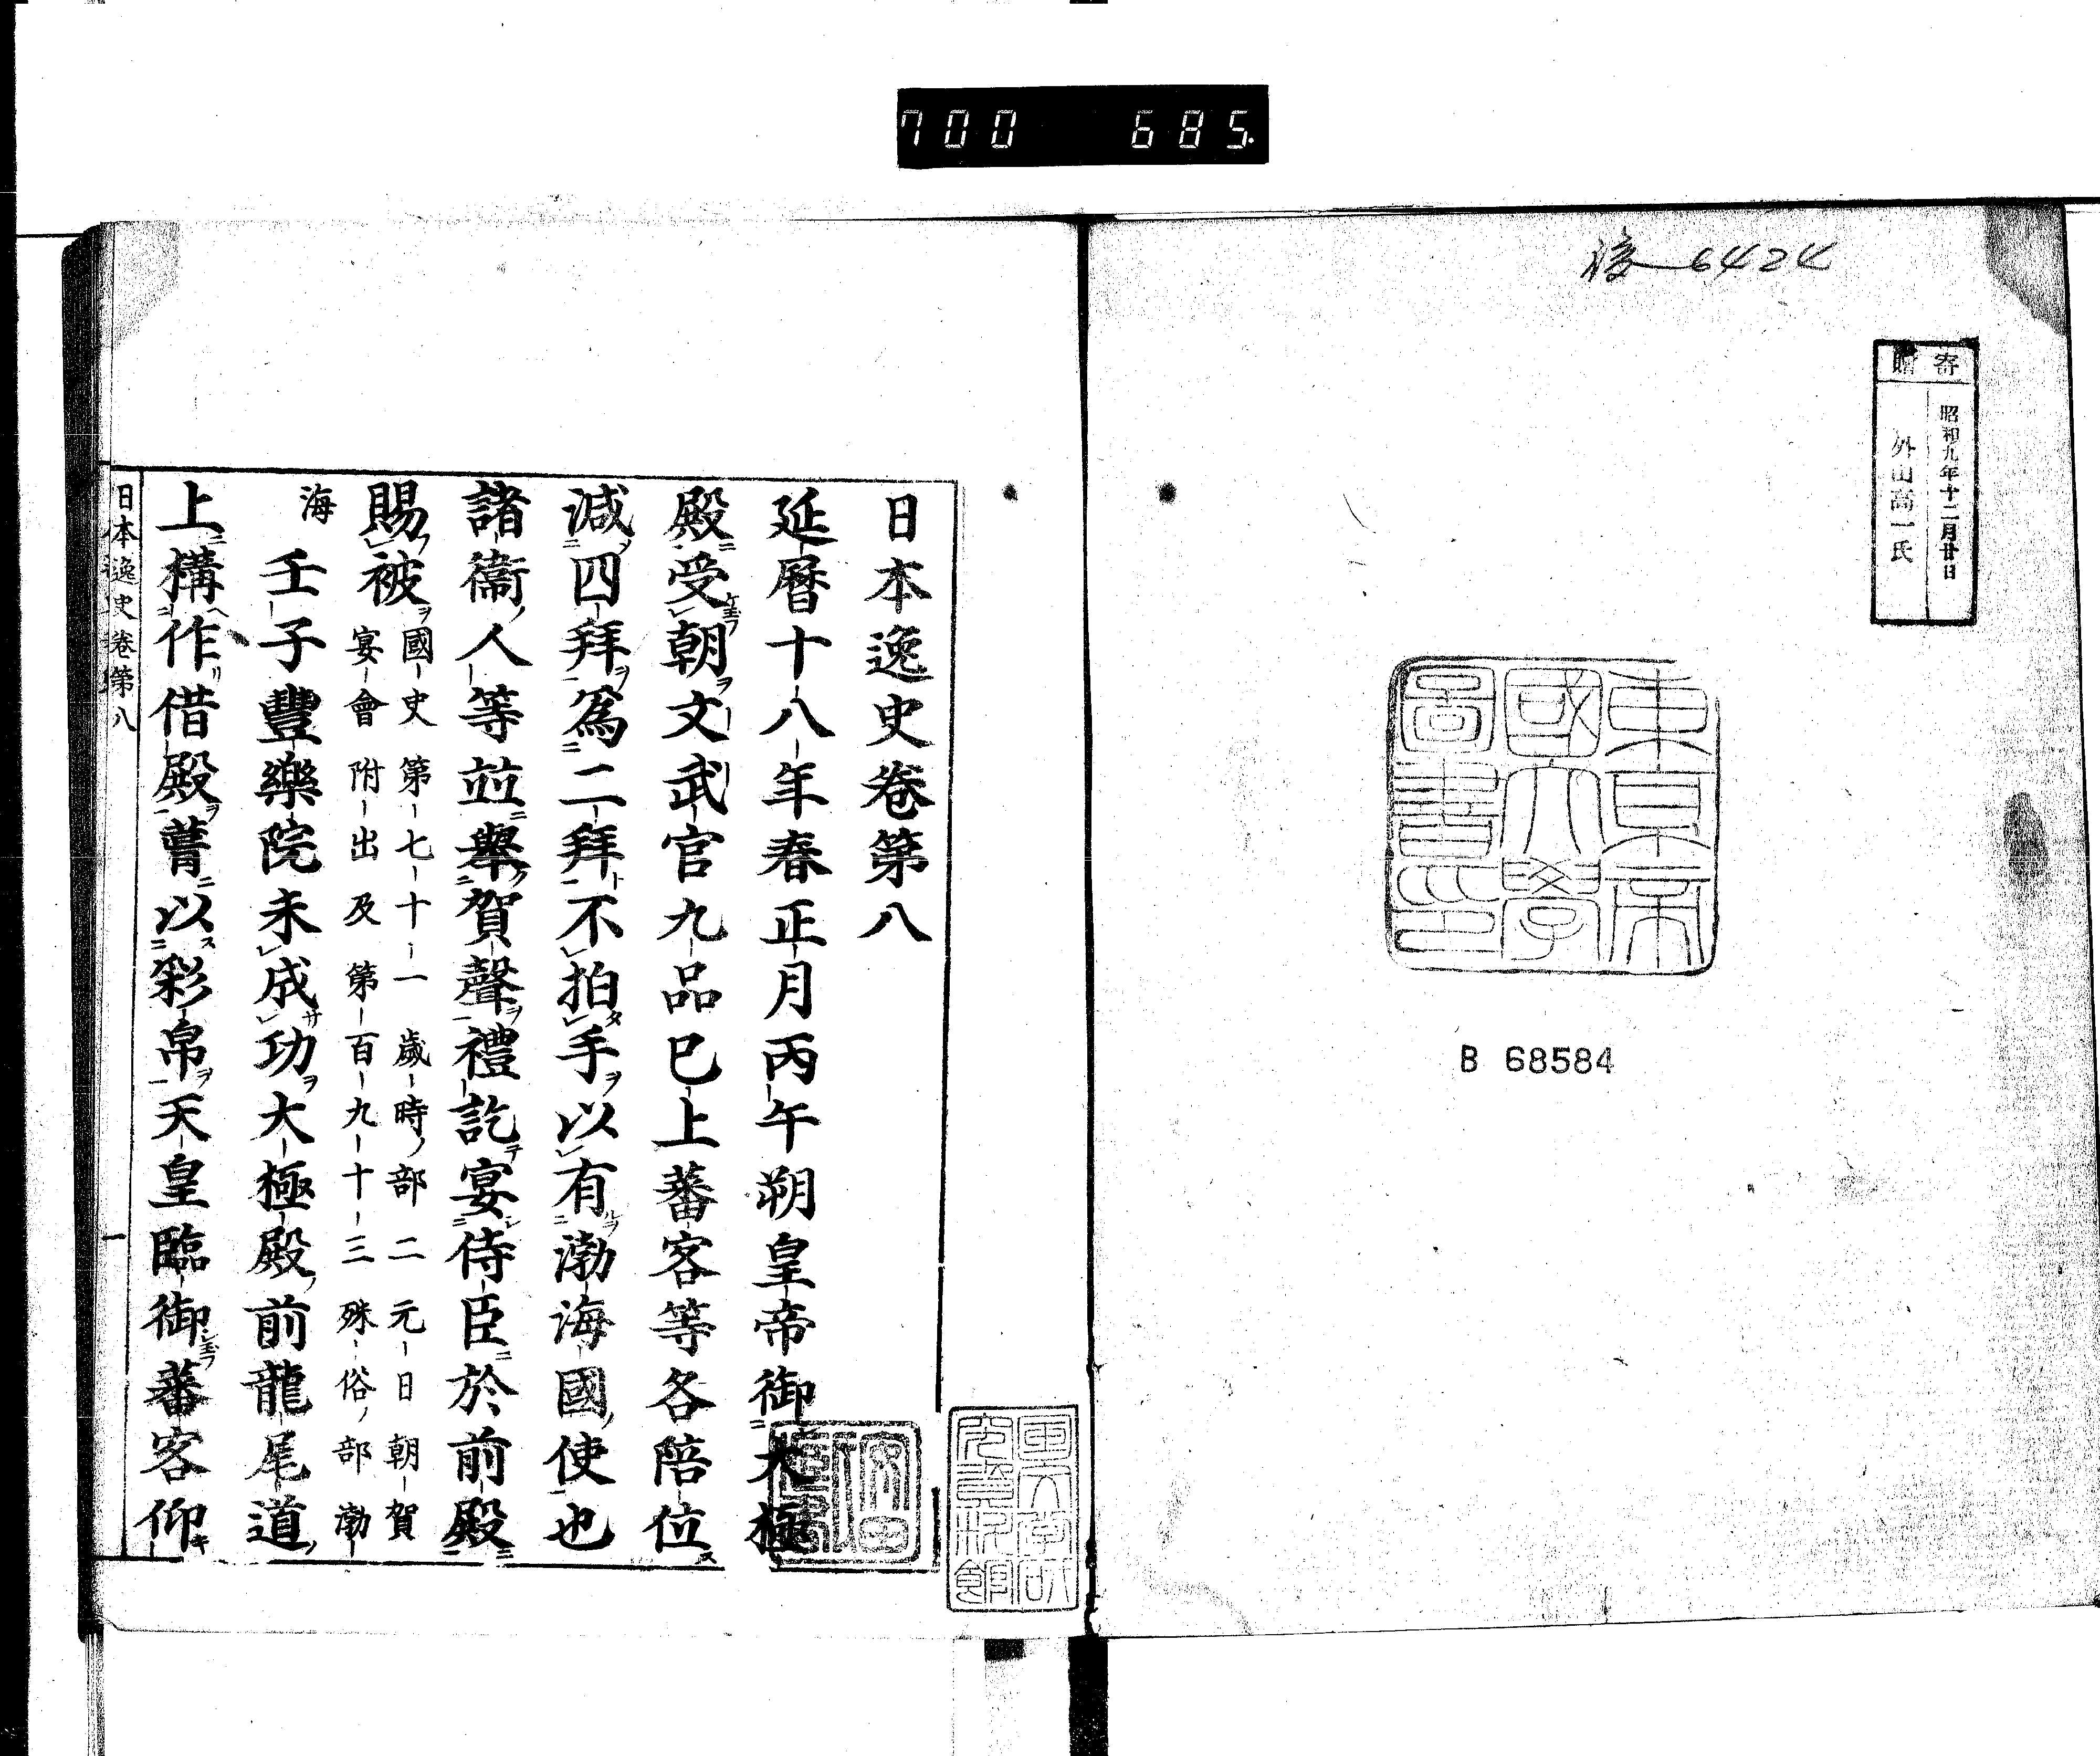 700 685.
後 6424
寄贈
昭和九年十二月廿日
外山高一氏
東京帝
國大學
圖書印
B 68584
日本逸史卷第八
延曆十八年春正月丙午朔皇帝御大極
殿受朝文武官九品已上蕃客等各陪位
減四拜爲二拜不拍手以有渤海國使也
諸衞人等竝擧賀聲禮訖宴侍臣於前殿
賜被國史第七十一歲時部二元日朝賀
宴會附出及第百九十三殊俗部渤
海
壬子豐樂院未成功大極殿前龍尾道
上構作借殿葺以彩帛天皇臨御蕃客仰
日本逸史卷第八
一